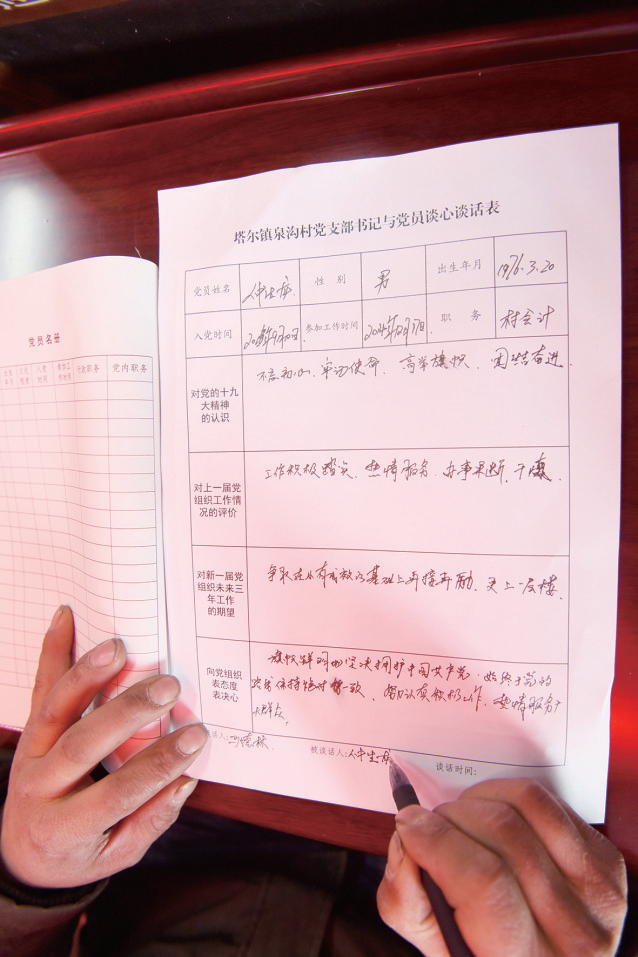 塔尔镇泉沟村党支部书记与党员谈心谈话表
党员姓名 性别 男 出生年月 1976.3.20
入党时间 参加工作时间 职务 村会计
对党的十九
大精神
的认识
不忘初心、牢记使命、高举旗帜、团结奋进
对上一届党
组织工作情
况的评价
工作积极踏实、热情服务、办事果断、干练。
对新一届党
组织未来三
年工作
的期望
争取在从有成效的基础上再接再励、更上一层楼。
向党组织
表态度
表决心
旗帜鲜明的坚决拥护中国共产党、始终于党的
保持绝对一致、认真做好工作、热情服务于
群众。
谈话人: 被谈话人: 谈话时间:
党员名册
入党
时间
参加工
作时间
行政职务
党内职务